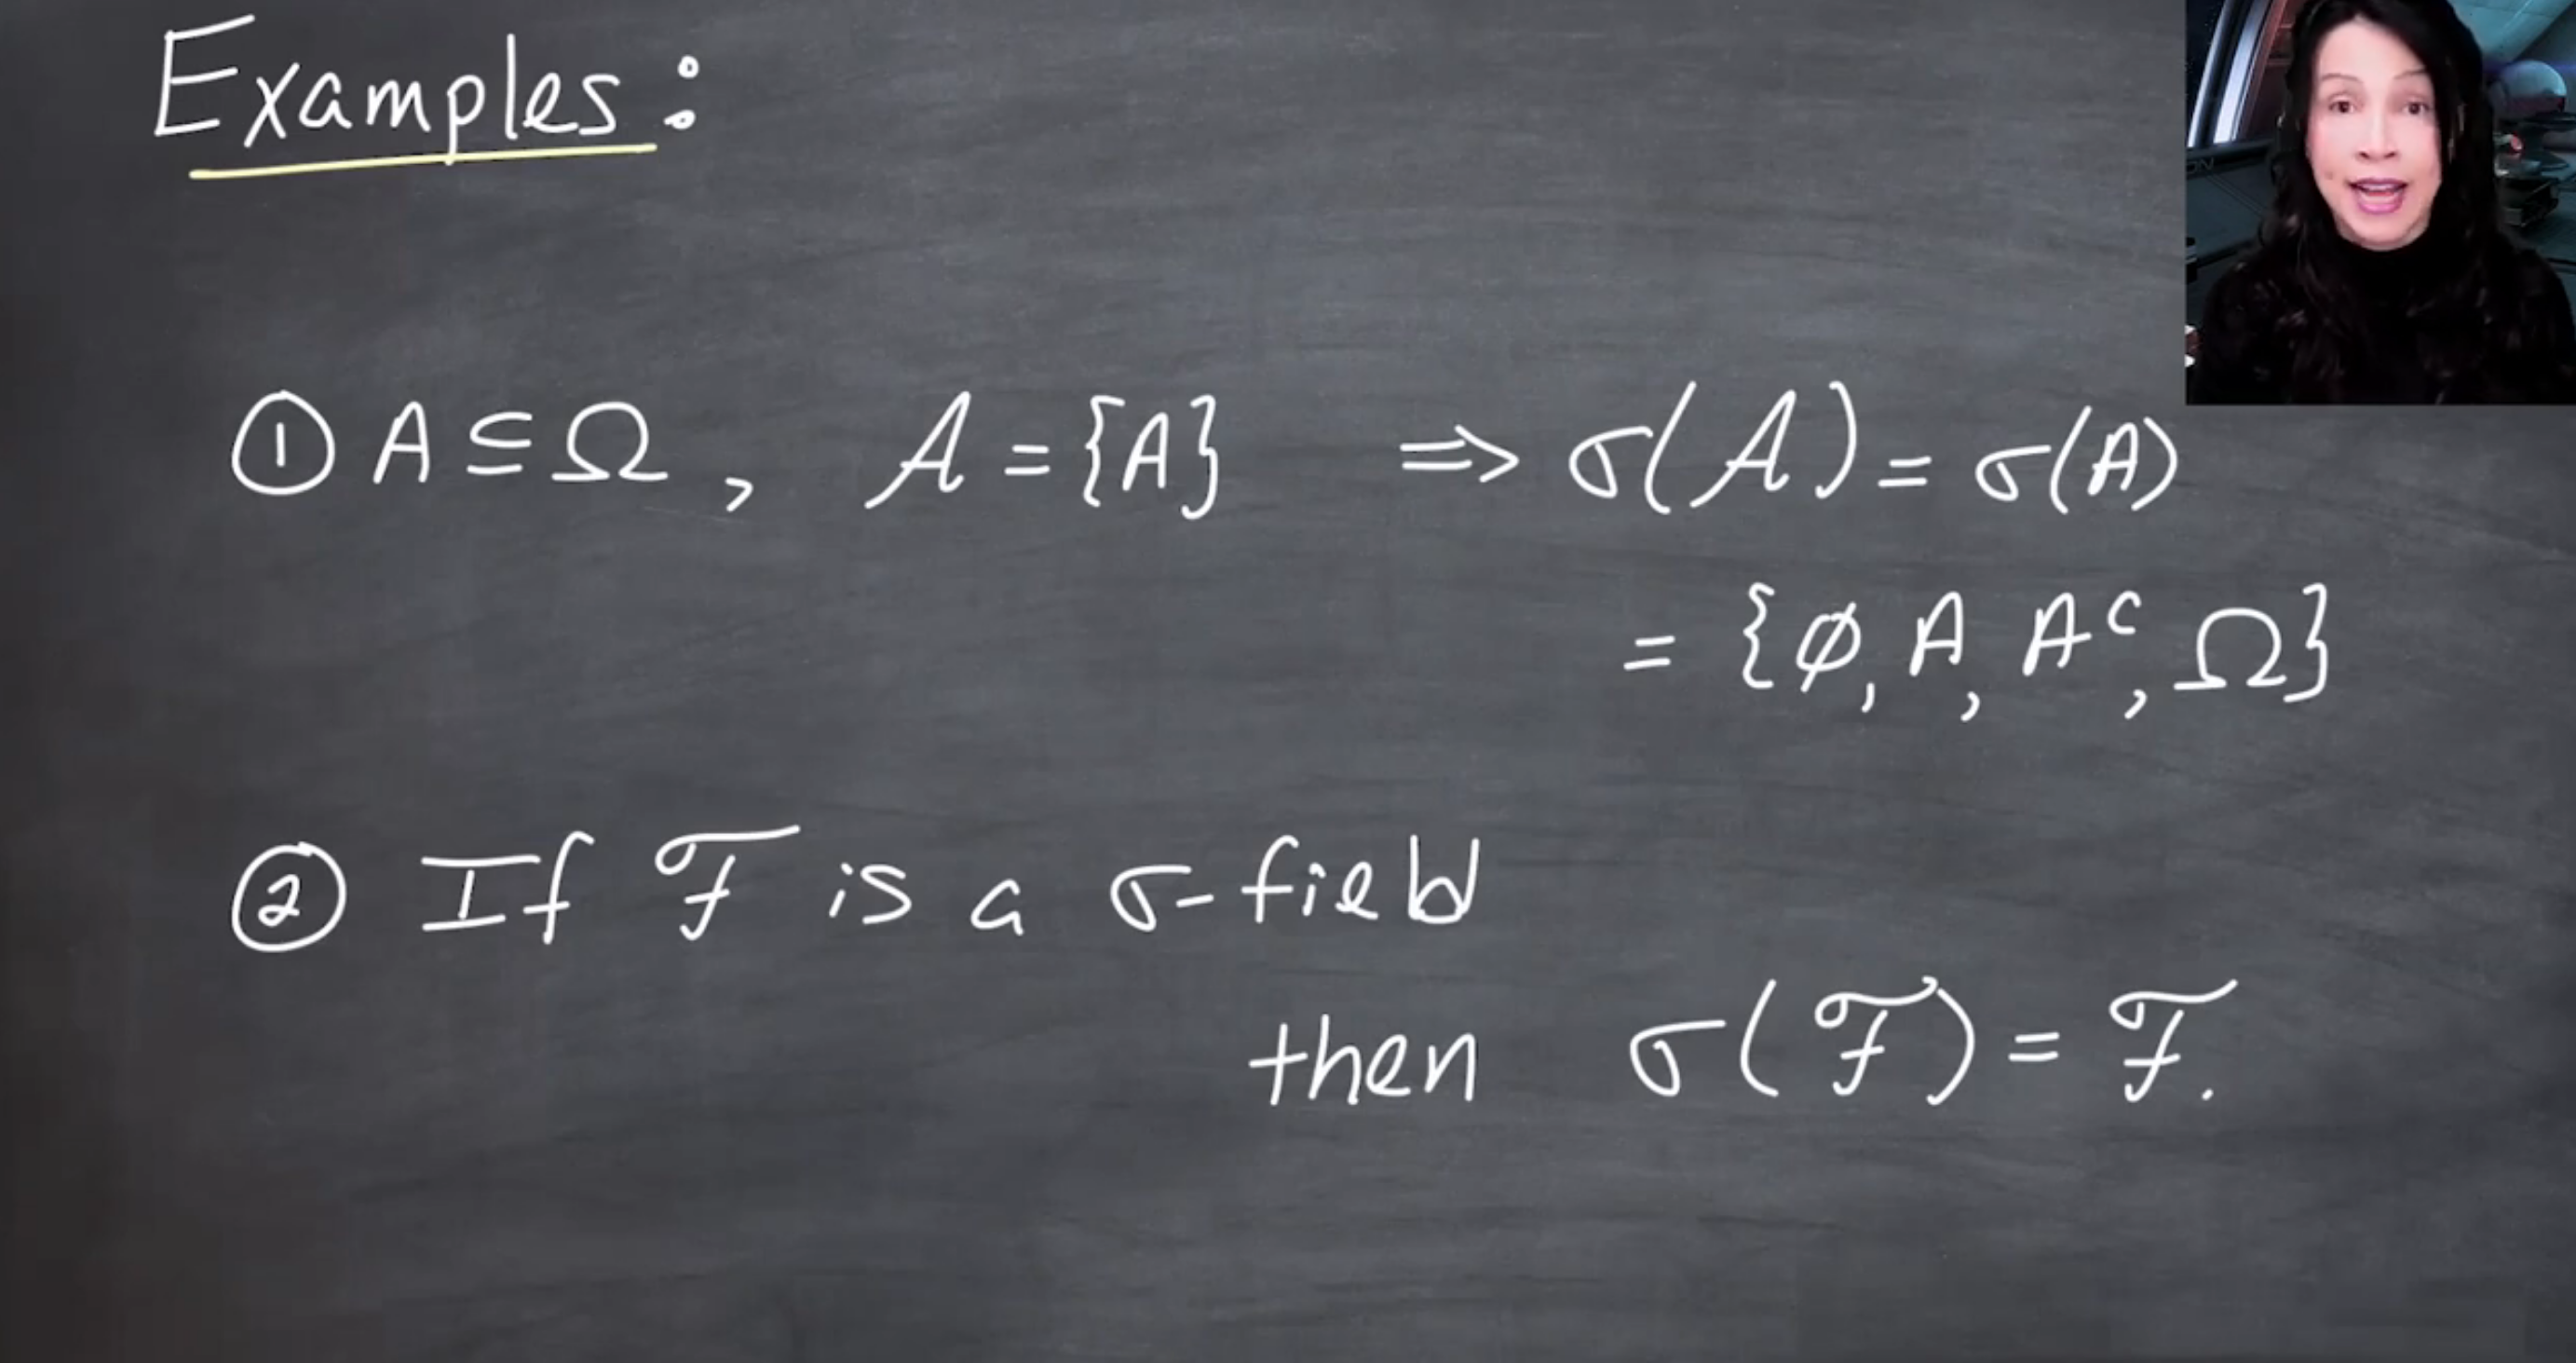 Examples:
① A ⊆ Ω , 𝒜 = {A} ⇒ σ(𝒜) = σ(A)
= {∅, A, Aᶜ, Ω}
② If ℱ is a σ-field
then σ(ℱ) = ℱ.